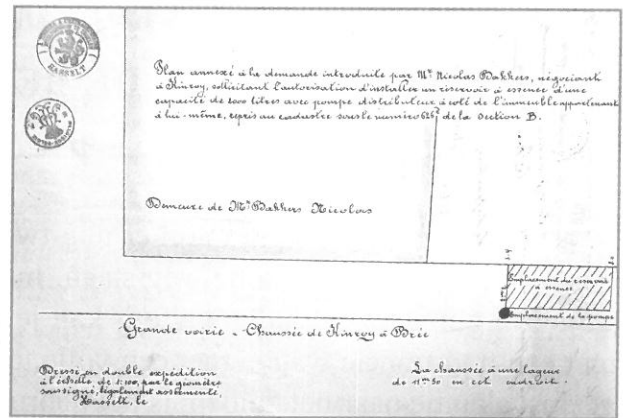 HASSELT
Plan annexé à la demande introduite par Mr Nicolas Bakkers, négociant
à Kinroy, sollicitant l'autorisation d'installer un réservoir à essence d'une
capacité de 2000 litres avec pompe distributeur à coté de l'immeuble appartenant
à lui-même, repris au cadastre sous le numéro 626 de la section B.
Demeure de Mr Bakkers Nicolas
Emplacement du réservoir
à essence
Emplacement de la pompe
Grande voirie - Chaussée de Kinroy à Brée
Dressé en double expédition
à l'échelle de 1:100, par le géomètre
soussigné, légalement assermenté,
Hasselt, le
La chaussée a une lageur
de 11m50 en cet endroit.